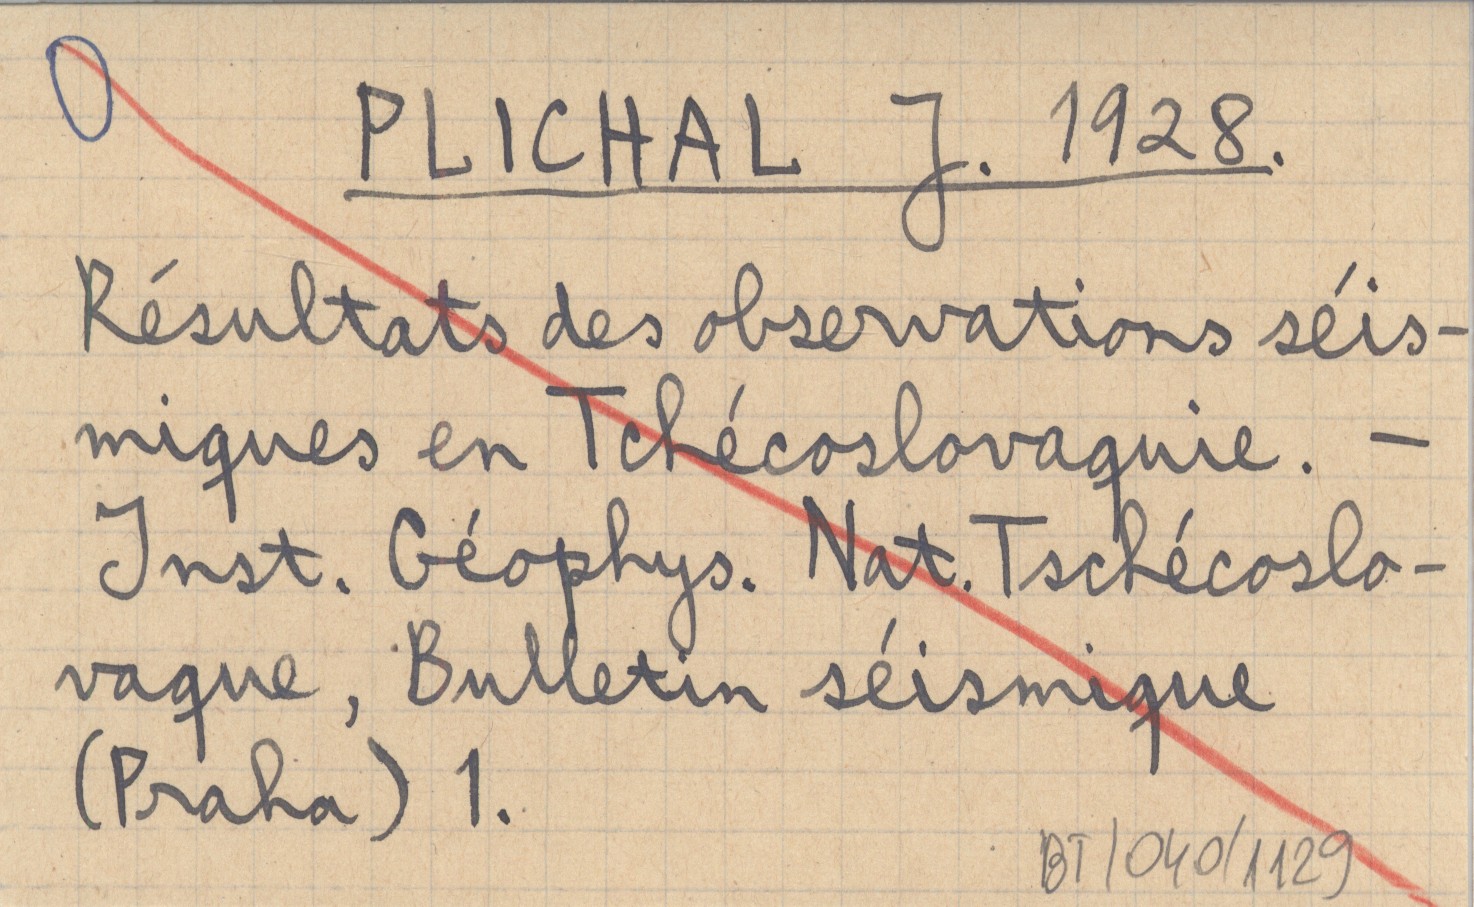 PLICHAL J. 1928.
Résultats des observations séis-
miques en Tchécoslovaquie. –
Inst. Géophys. Nat. Tschécoslo-
vaque, Bulletin séismique
(Praha) 1.
BT/040/1129